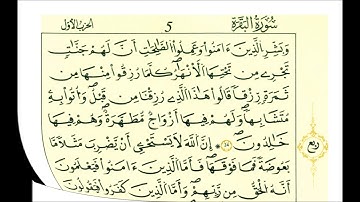 سُورَةُ الْبَقَرَةِ 5 الحزب الأول
وَبَشِّرِ الَّذِينَ ءَامَنُوا وَعَمِلُوا الصَّٰلِحَٰتِ أَنَّ لَهُمْ جَنَّٰتٍ
تَجْرِے مِن تَحْتِهَا الْأَنْهَٰرُ كُلَّمَا رُزِقُوا مِنْهَا مِن
ثَمَرَةٍ رِّزْقاً قَالُوا هَٰذَا الَّذِے رُزِقْنَا مِن قَبْلُ وَأُتُوا بِهِ
مُتَشَٰبِهاً وَلَهُمْ فِيهَا أَزْوَٰجٌ مُّطَهَّرَةٌ وَهُمْ فِيهَا
خَٰلِدُونَ 24 إِنَّ اللَّهَ لَا يَسْتَحْيِے أَنْ يَّضْرِبَ مَثَلاً مَّا
بَعُوضَةً فَمَا فَوْقَهَا فَأَمَّا الَّذِينَ ءَامَنُوا فَيَعْلَمُونَ
أَنَّهُ الْحَقُّ مِن رَّبِّهِمْ وَأَمَّا الَّذِينَ كَفَرُوا فَيَقُولُونَ
ربع